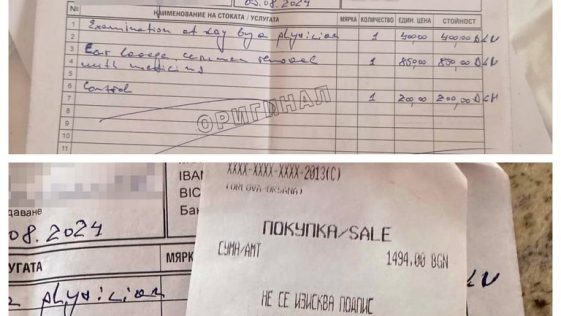 05.08.2024
№ НАИМЕНОВАНИЕ НА СТОКАТА / УСЛУГАТА МЯРКА КОЛИЧЕСТВО ЕДИН. ЦЕНА СТОЙНОСТ
1 Examination of by a physician 1 400,00 400,00
2
3 Ear removal 1 850,00 850,00
4 with medicine
5
6 Control
7 1 200,00 200,00
8
9 ОРИГИНАЛ
10
11
XXXX-XXXX-XXXX-2013(C)
ПОКУПКА/SALE
СУМА/АМТ 1494.00 BGN
НЕ СЕ ИЗИСКВА ПОДПИС
ИВАН
BIC
Бан
даване
.08.2024
СЛУГАТА МЯРК
physician